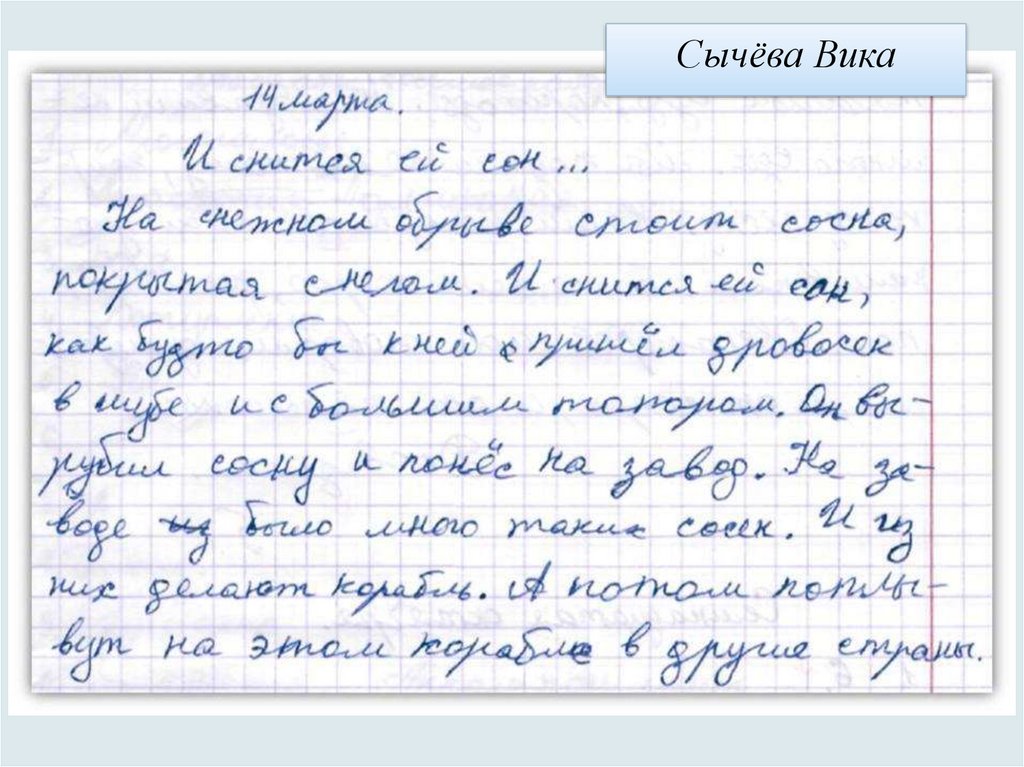 Сычёва Вика
14 марта.
И снится ей сон...
На снежном обрыве стоит сосна,
покрытая снегом. И снится ей сон,
как будто бы к ней пришёл дровосек
в шубе и с большим топором. Он вы-
рубил сосну и понёс на завод. На за-
воде из было много таких сосен. И из
них делают корабль. А потом поплы-
вут на этом корабле в другие страны.